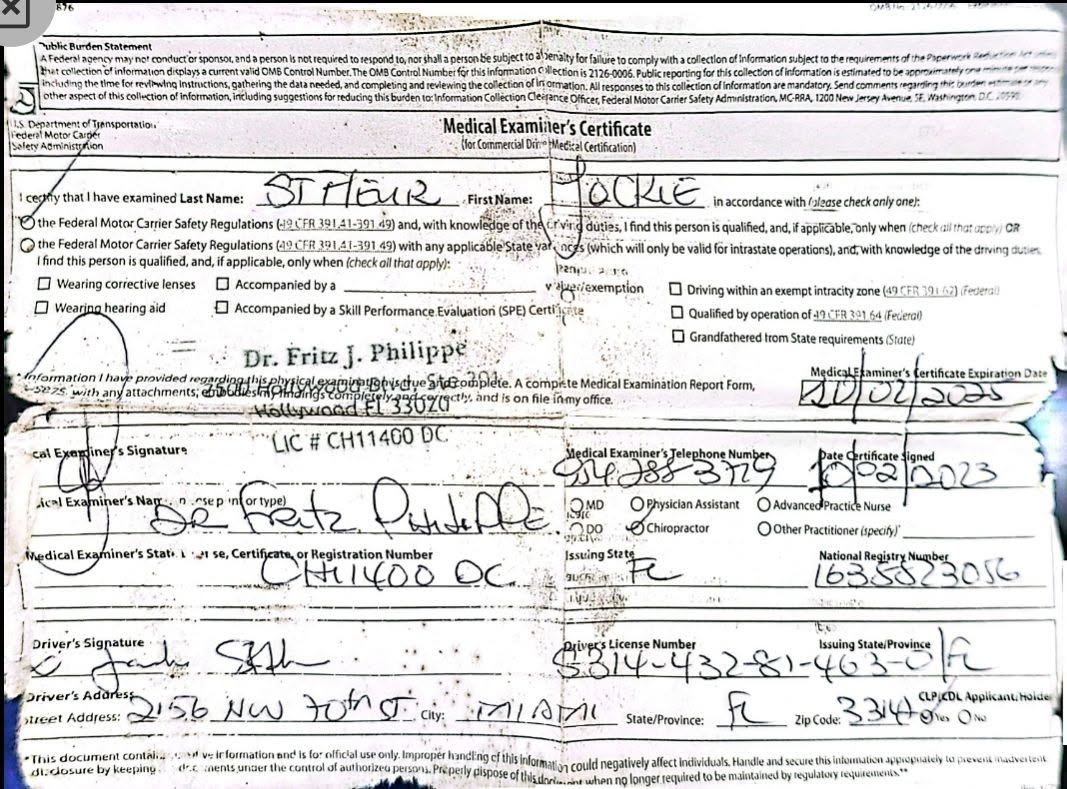 Public Burden Statement
A Federal agency may not conduct or sponsor, and a person is not required to respond to, nor shall a person be subject to a penalty for failure to comply with a collection of information subject to the requirements of the Paperwork Reduction Act unless
that collection of information displays a current valid OMB Control Number. The OMB Control Number for this information collection is 2126-0006. Public reporting for this collection of information is estimated to be approximately one minute per
including the time for reviewing instructions, gathering the data needed, and completing and reviewing the collection of information. All responses to this collection of information are mandatory. Send comments regarding this burden estimate or any
other aspect of this collection of information, including suggestions for reducing this burden to: Information Collection Clearance Officer, Federal Motor Carrier Safety Administration, MC-RRA, 1200 New Jersey Avenue, SE, Washington, D.C. 20590.
U.S. Department of Transportation
Federal Motor Carrier
Safety Administration
Medical Examiner's Certificate
(for Commercial Driver Medical Certification)
I certify that I have examined Last Name: ST FLEUR First Name: JOCKIE in accordance with (please check only one):
the Federal Motor Carrier Safety Regulations (49 CFR 391.41-391.49) and, with knowledge of the driving duties, I find this person is qualified, and, if applicable, only when (check all that apply) OR
the Federal Motor Carrier Safety Regulations (49 CFR 391.41-391.49) with any applicable State variances (which will only be valid for intrastate operations), and, with knowledge of the driving duties,
I find this person is qualified, and, if applicable, only when (check all that apply):
Wearing corrective lenses Accompanied by a waiver/exemption Driving within an exempt intracity zone (49 CFR 391.62) (Federal)
Wearing hearing aid Accompanied by a Skill Performance Evaluation (SPE) Certificate Qualified by operation of 49 CFR 391.64 (Federal)
Grandfathered from State requirements (State)
Dr. Fritz J. Philippe
Information I have provided regarding this physical examination is true and complete. A complete Medical Examination Report Form,
with any attachments, embodies my findings completely and correctly, and is on file in my office.
2500 Hollywood Blvd
Hollywood Fl 33020
LIC # CH11400 DC
Medical Examiner's Certificate Expiration Date
10/02/2025
cal Examiner's Signature
Medical Examiner's Telephone Number
954-288-3729
Date Certificate Signed
10/02/2023
ical Examiner's Name
or type)
DR Fritz Philippe
MD Physician Assistant Advanced Practice Nurse
DO Chiropractor Other Practitioner (specify)
Medical Examiner's State Certificate, or Registration Number
CH11400 DC
Issuing State
FL
National Registry Number
1635523056
Driver's Signature
Driver's License Number
S314-432-81-463-0
Issuing State/Province
FL
Driver's Address
Street Address: 2156 NW 70th ST City: MIAMI State/Province: FL Zip Code: 33147
CLP/CDL Applicant/Holder
Yes No
"This document contains information and is for official use only. Improper handling of this information could negatively affect individuals. Handle and secure this information appropriately to prevent inadvertent
disclosure by keeping documents under the control of authorized persons. Properly dispose of this document when no longer required to be maintained by regulatory requirements."